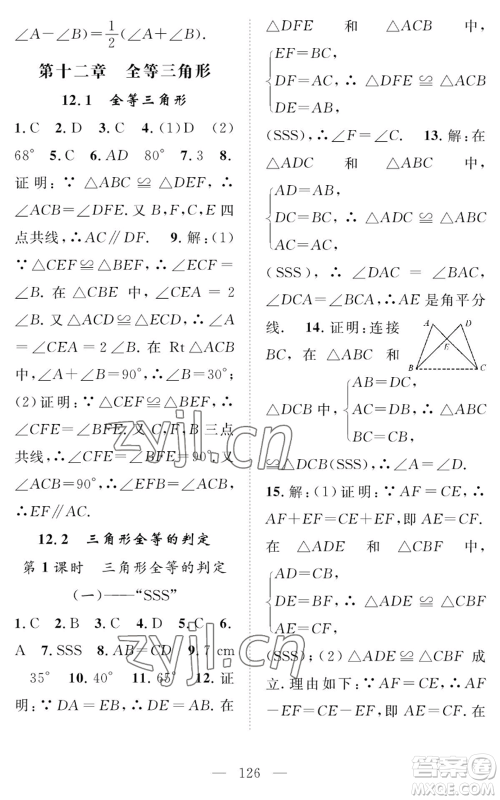 ∠A－∠B)＝1/2(∠A＋∠B).
第十二章　全等三角形
12.1　全等三角形
1.C　2.D　3.C　4.(1)D　(2)
68°　5.C　6.AD　80°　7.3　8.
证明：∵ △ABC ≌ △DEF,∴
∠ACB＝∠DFE.又 B,F,C,E 四
点共线,∴AC∥DF.　9.解：(1)
∵△CEF≌△BEF,∴∠ECF＝
∠B.在△CBE 中,∠CEA＝2
∠B.又∵∠CEA＝2∠A,∴∠A
＝∠CEA＝2∠B.在 Rt△ACB
中,∠A＋∠B＝90°,∴∠B＝30°.
(2)证明：∵△CEF≌△BEF,∴
∠CFE＝∠BFE.又 C,F,B 三点
共线,∴∠CFE＝∠BFE＝90°.又
∠ACB＝90°,∴∠EFB＝∠ACB
∴EF∥AC.
12.2　三角形全等的判定
第1课时　三角形全等的判定
(一)——“SSS”
1.C　2.B　3.C　4.D　5.C　6.
A　7.SSS　8.AB＝CD　9.7 cm
35°　10.40°　11.65°　12.证
明：∵DA＝EB,∴DE＝AB.在
△DFE 和 △ABC 中,
EF＝BC,
DF＝AC,∴△DFE≌△ABC
DE＝AB,
(SSS),∴∠F＝∠C.　13.解：在
△ADC 和 △ABC 中,
AD＝AB,
DC＝BC,∴△ADC≌△ABC
AC＝AC,
(SSS),∴ ∠DAC ＝ ∠BAC,
∠DCA＝∠BCA,∴AE 是角平分
线.　14.证明：连接
BC,在△ABC 和
A
D
E
B
C
AB＝DC,
△DCB 中,AC＝DB,∴△ABC
BC＝CB,
≌△DCB(SSS),∴∠A＝∠D.
15.解：(1)证明：∵AF＝CE,∴
AF＋EF＝CE＋EF,即 AE＝CF.
在 △ADE 和 △CBF 中,
AD＝CB,
DE＝BF,∴ △ADE ≌ △CBF
AE＝CF,
(SSS)；(2)△ADE≌△CBF 成
立.理由如下：∵AF＝CE,∴AF
－EF＝CE－EF,即 AE＝CF.在
126
zyjl.cn
zyjl.cn
作业精灵